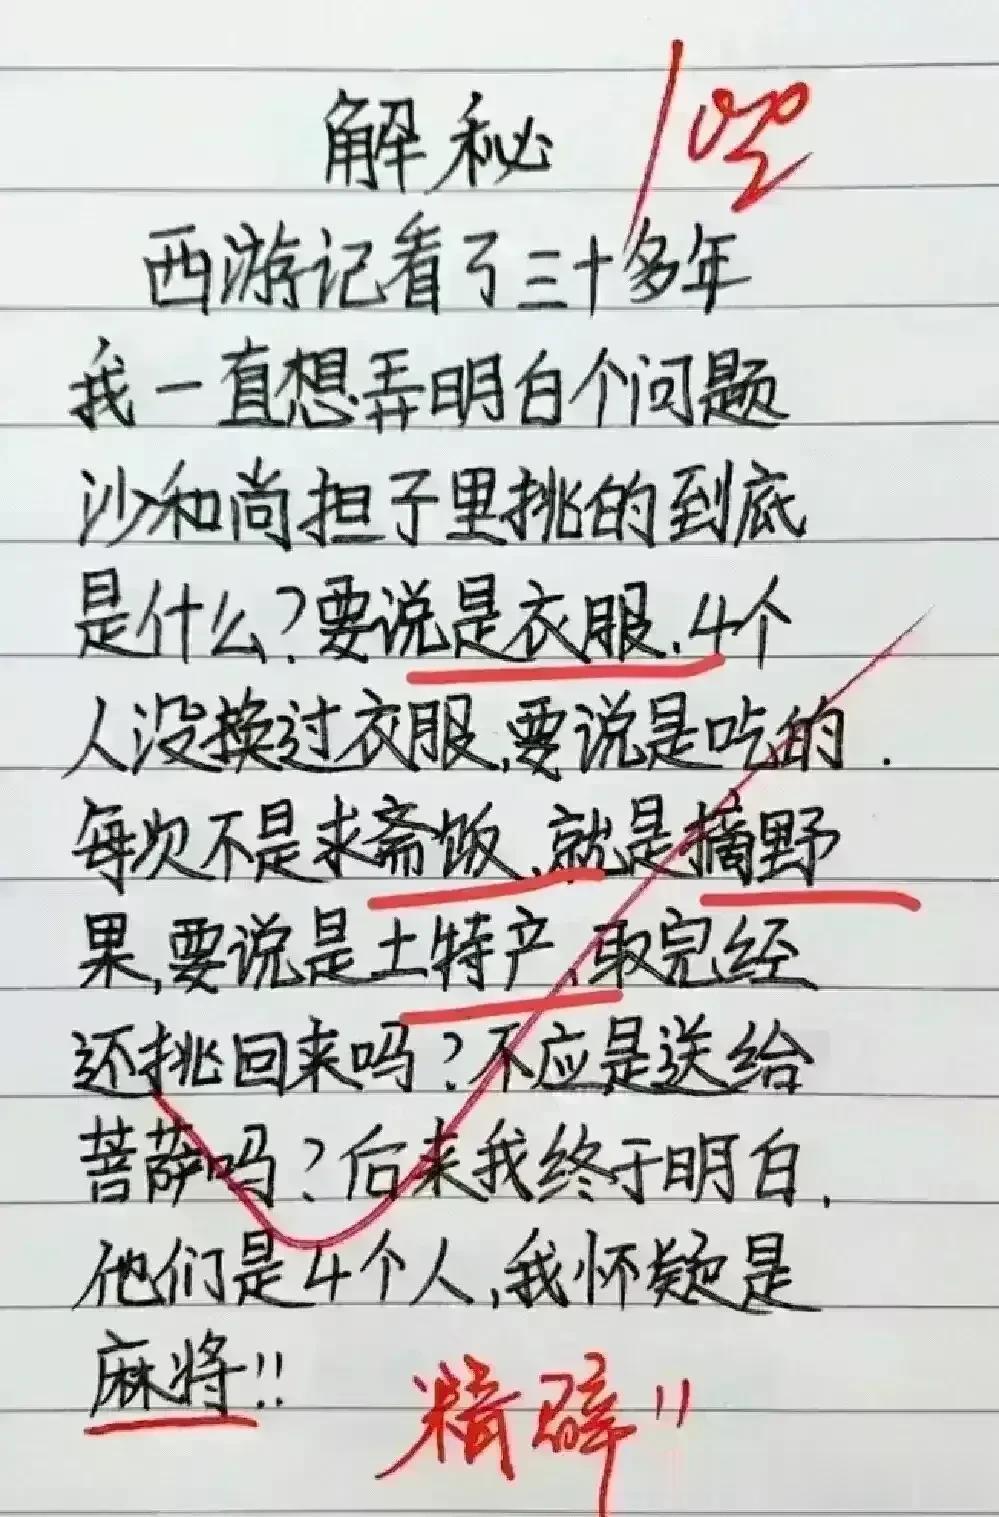 解秘
100
西游记看了三十多年
我一直想弄明白个问题
沙和尚担子里挑的到底
是什么?要说是衣服.4个
人没换过衣服,要说是吃的.
每次不是求斋饭、就是摘野
果,要说是土特产、取完经
还挑回来吗?不应是送给
菩萨吗?后来我终于明白,
他们是4个人,我怀疑是
麻将!!
精辟!!